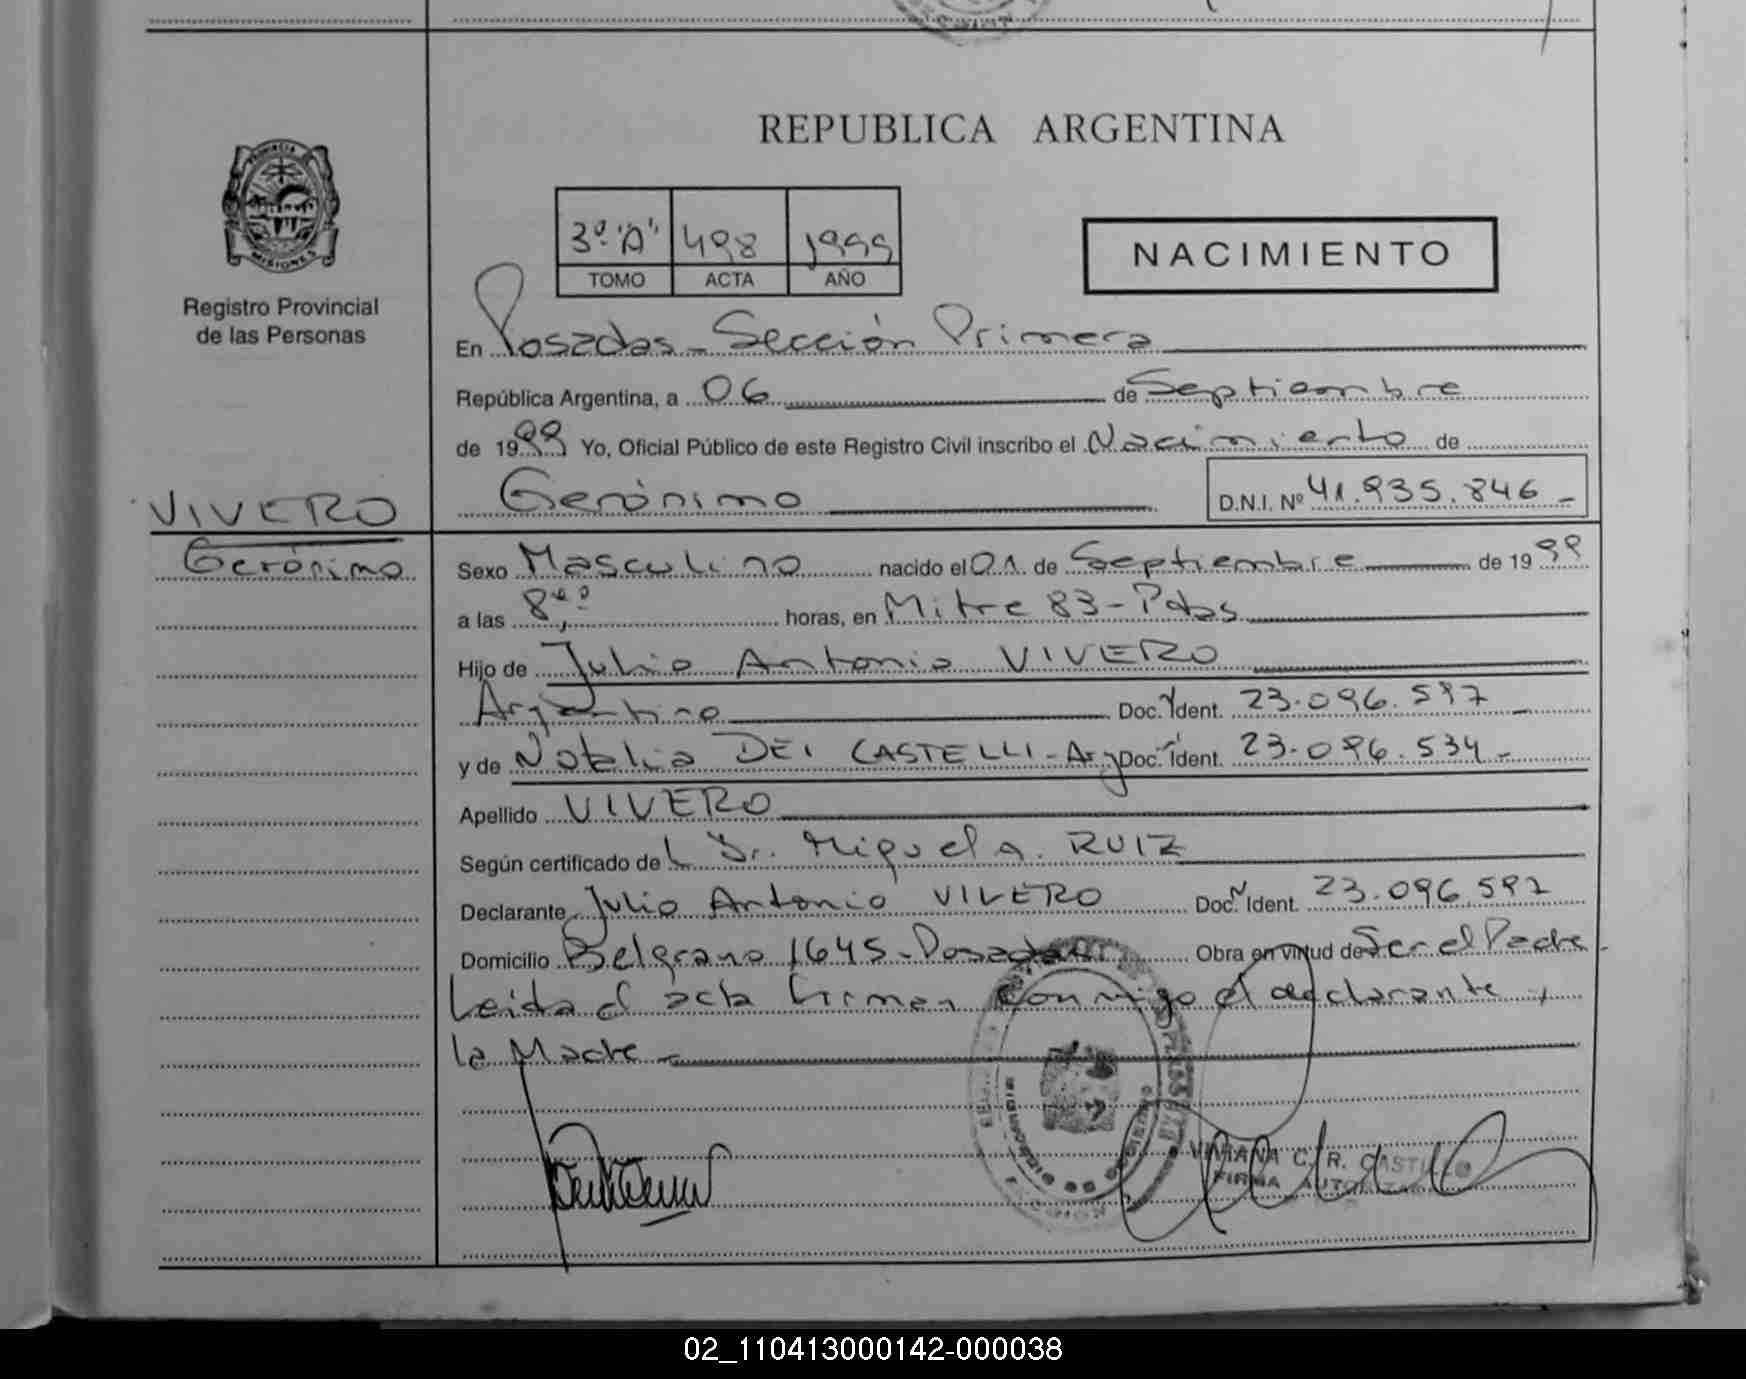 REPUBLICA ARGENTINA
PROVINCIA DE
MISIONES
Registro Provincial
de las Personas
3º "A" 498 1999
TOMO ACTA AÑO
NACIMIENTO
En Posadas - Sección Primera
República Argentina, a 06 de Septiembre
de 1999 Yo, Oficial Público de este Registro Civil inscribo el Nacimiento de
VIVERO
Gerónimo
Gerónimo D.N.I. Nº 41.935.846 -
Sexo Masculino nacido el 01 de Septiembre de 1999
a las 8,00 horas, en Mitre 83 - Pdas
Hijo de Julio Antonio VIVERO
Argentino Doc. Ident. 23.096.597
y de Natalia DEI CASTELLI - Arg Doc. Ident. 23.096.534 -
Apellido VIVERO
Según certificado del Dr. Miguel A. RUIZ
Declarante Julio Antonio VIVERO Doc. Ident. 23.096.597
Domicilio Belgrano 1645 - Posadas Obra en virtud de Ser el Padre -
Leida el acta firman conmigo el declarante y
la Madre -
VIVIANA C. R. CASTILLO
FIRMA AUTORIZADA
02_110413000142-000038